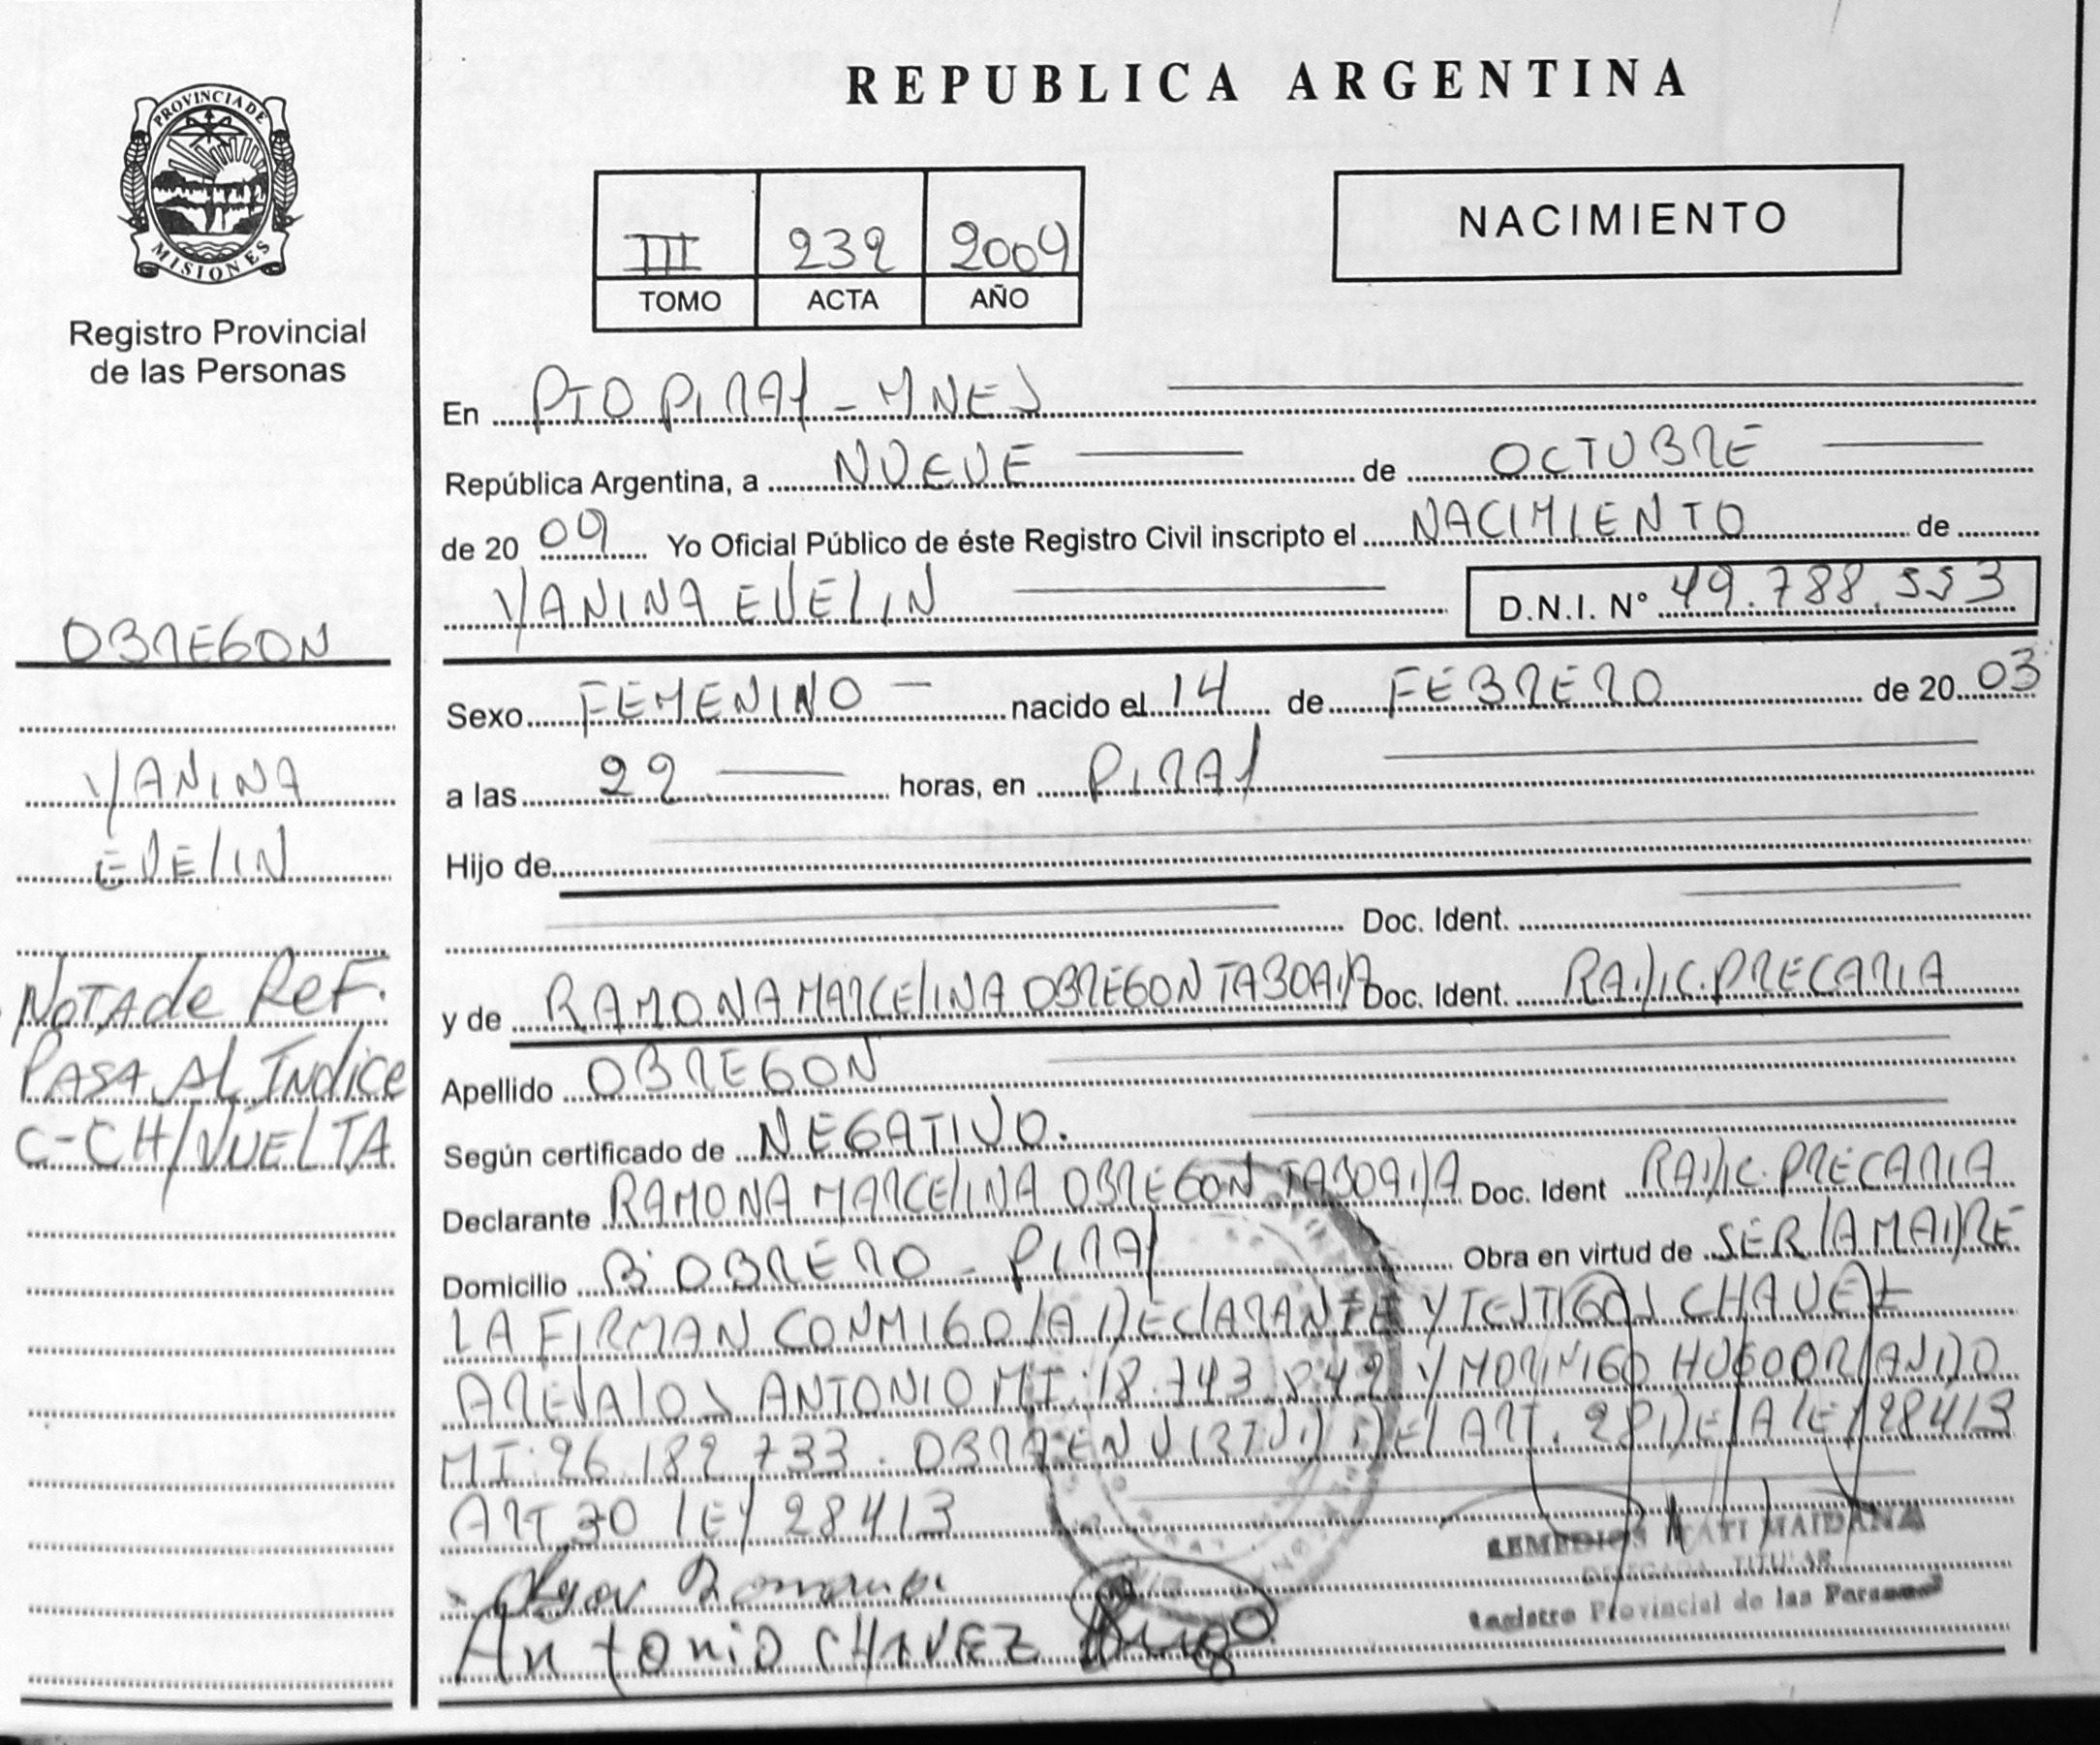 PROVINCIA DE
MISIONES
Registro Provincial
de las Personas
OBREGON
YANINA
EVELIN
NOTA de REF.
PASA AL INdice
C-CH/VUELTA
REPUBLICA ARGENTINA
III 232 2009
TOMO ACTA AÑO
NACIMIENTO
En PTO PIRAY - MNES
República Argentina, a NUEVE de OCTUBRE
de 20 09 Yo Oficial Público de éste Registro Civil inscripto el NACIMIENTO de
YANINA EVELIN D.N.I. Nº 49.788.553
Sexo FEMENINO nacido el 14 de FEBRERO de 20 03
a las 22 horas, en PIRAY
Hijo de
Doc. Ident.
y de RAMONA MARCELINA OBREGON TABOADA Doc. Ident. RADIC. PRECARIA
Apellido OBREGON
Según certificado de NEGATIVO.
Declarante RAMONA MARCELINA OBREGON TABOADA Doc. Ident RADIC. PRECARIA
Domicilio Bº OBRERO - PIRAY Obra en virtud de SER LA MADRE
LA FIRMAN CONMIGO LA DECLARANTE Y TESTIGOS CHAVEZ
AREVALOS ANTONIO MI: 18.743.842 Y MORINIGO HUGO ORLANDO
MI: 26.182.733. OBRA EN VIRTUD DEL ART. 28 DE LA LEY 28413
ART 30 LEY 28413
Antonio CHAVEZ
REMEDIOS ITATI MAIDANA
DELEGADA TITULAR
Registro Provincial de las Personas